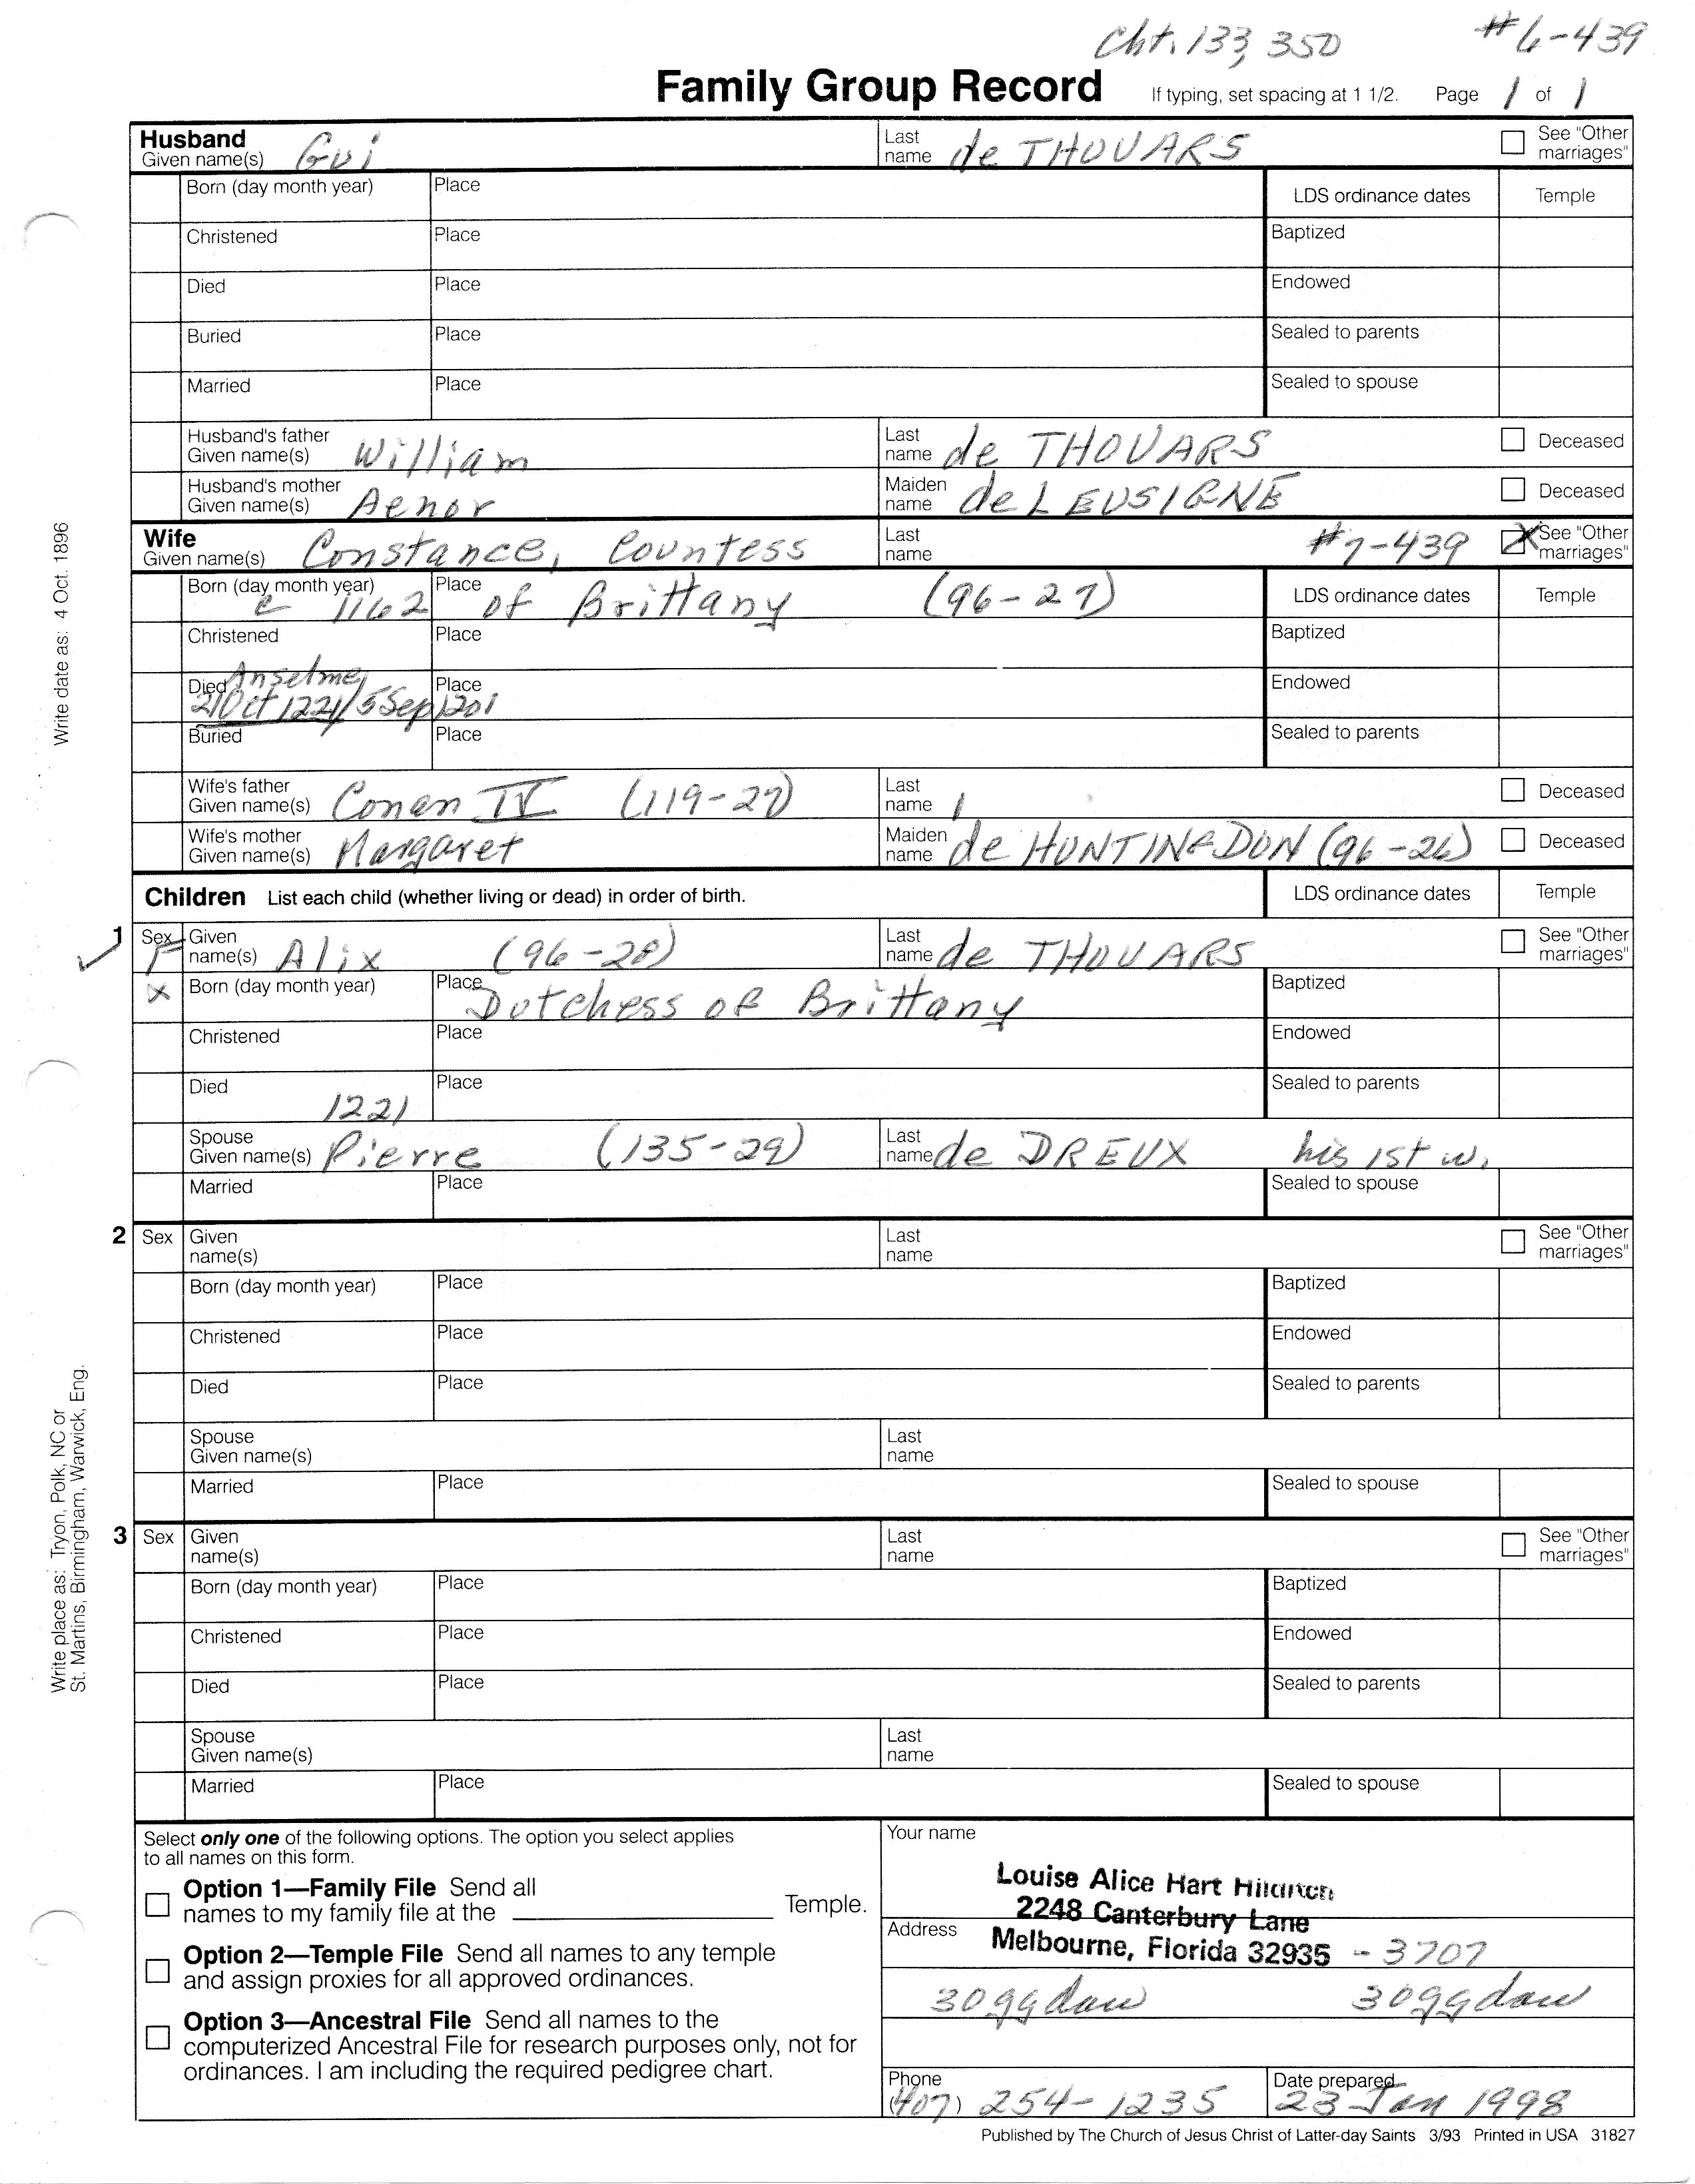 Cht. 133, 350 #6-439
Family Group Record If typing, set spacing at 1 1/2. Page 1 of 1
Husband
Given name(s) Gui Last name de THOUARS See "Other marriages"
Born (day month year) Place LDS ordinance dates Temple
Christened Place Baptized
Died Place Endowed
Buried Place Sealed to parents
Married Place Sealed to spouse
Husband's father
Given name(s) William Last name de THOUARS Deceased
Husband's mother
Given name(s) Aenor Maiden name de LEUSIGNE Deceased
Wife
Given name(s) Constance, Countess Last name #7-439 X See "Other marriages"
Born (day month year) c 1162 Place of Brittany (96-27) LDS ordinance dates Temple
Christened Place Baptized
Anselme
Died 21 Oct 1221/5 Sep 1201 Place Endowed
Buried Place Sealed to parents
Wife's father
Given name(s) Conan IV (119-27) Last name Deceased
Wife's mother
Given name(s) Margaret Maiden name de HUNTINGDON (96-26) Deceased
Children List each child (whether living or dead) in order of birth. LDS ordinance dates Temple
1 Sex F Given name(s) Alix (96-28) Last name de THOUARS See "Other marriages"
X Born (day month year) Place Dutchess of Brittany Baptized
Christened Place Endowed
Died 1221 Place Sealed to parents
Spouse
Given name(s) Pierre (135-29) Last name de DREUX his 1st w.
Married Place Sealed to spouse
2 Sex Given name(s) Last name See "Other marriages"
Born (day month year) Place Baptized
Christened Place Endowed
Died Place Sealed to parents
Spouse
Given name(s) Last name
Married Place Sealed to spouse
3 Sex Given name(s) Last name See "Other marriages"
Born (day month year) Place Baptized
Christened Place Endowed
Died Place Sealed to parents
Spouse
Given name(s) Last name
Married Place Sealed to spouse
Select only one of the following options. The option you select applies
to all names on this form.
Option 1—Family File Send all
names to my family file at the Temple.
Option 2—Temple File Send all names to any temple
and assign proxies for all approved ordinances.
Option 3—Ancestral File Send all names to the
computerized Ancestral File for research purposes only, not for
ordinances. I am including the required pedigree chart.
Your name
Louise Alice Hart
2248 Canterbury Lane
Address
Melbourne, Florida 32935 - 3707
30ggdau 30ggdau
Phone
(407) 254-1235
Date prepared
23 Jan 1998
Published by The Church of Jesus Christ of Latter-day Saints 3/93 Printed in USA 31827
Write date as: 4 Oct. 1896
Write place as: Tryon, Polk, NC or
St. Martins, Birmingham, Warwick, Eng.